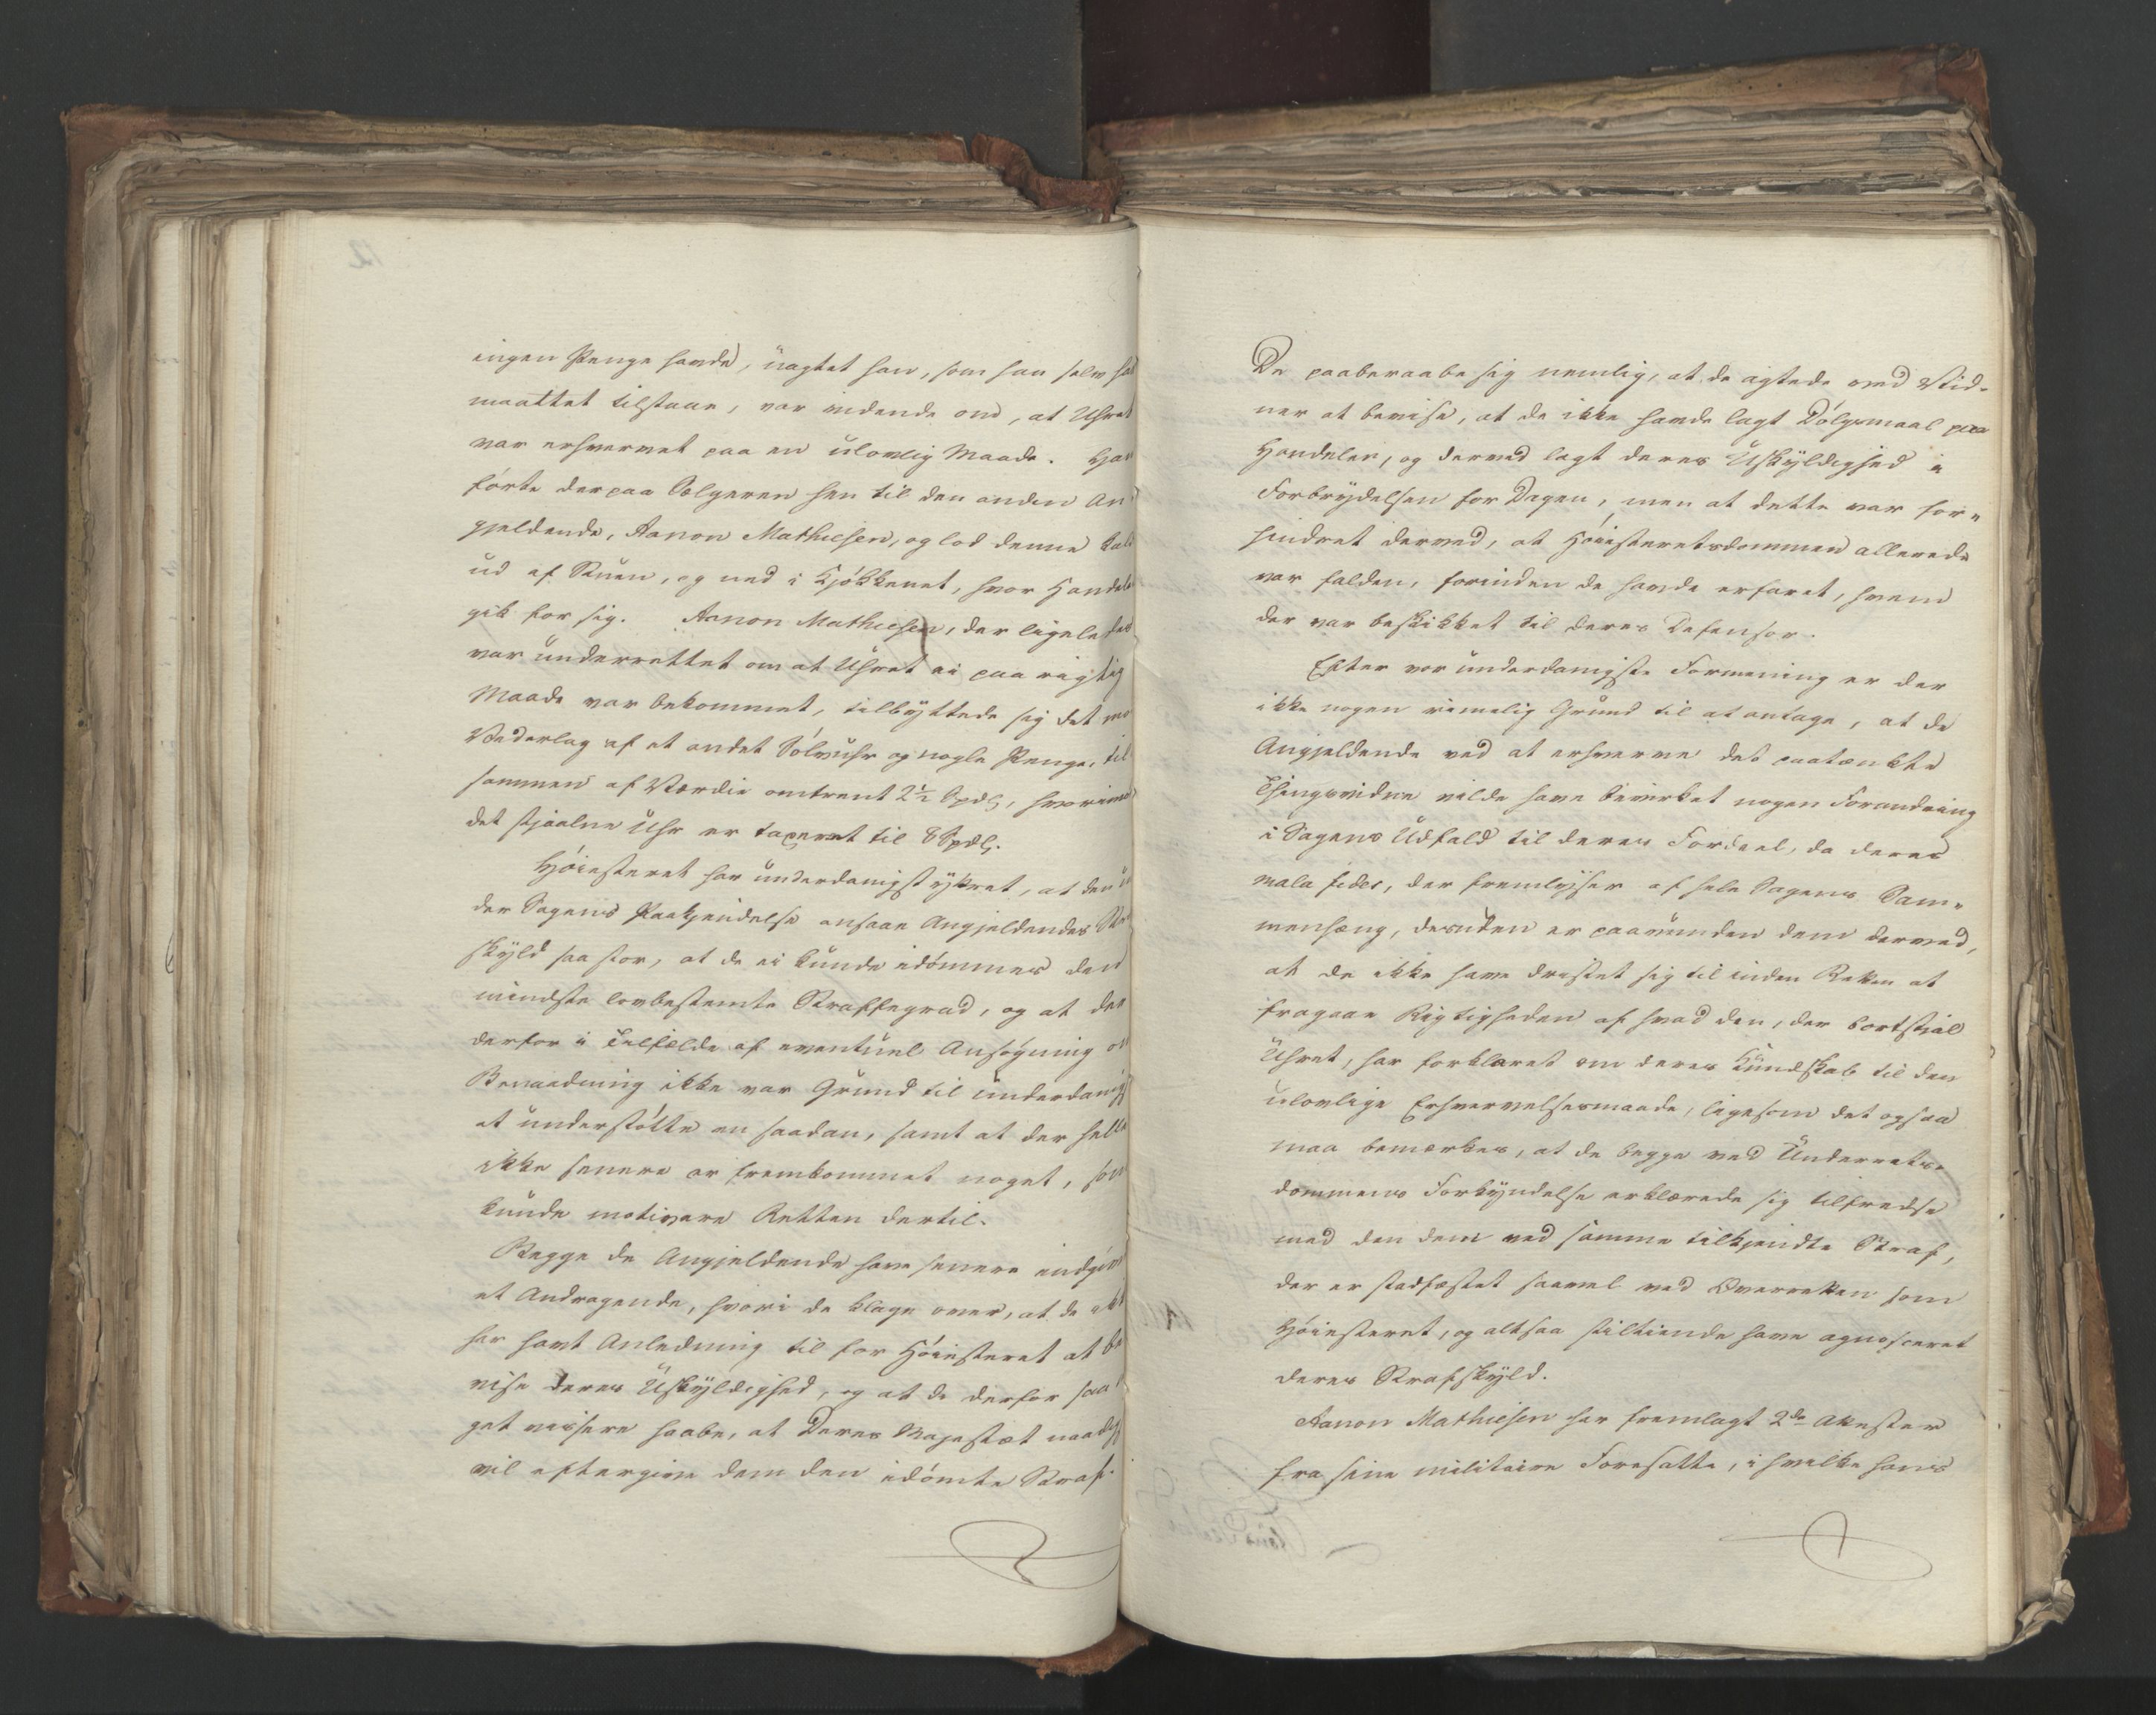 ingen Penge havde, uagtet han, som han selv ha
maattet tilstaae, var vidende om, at Uhret
var erhvervet paa en ulovlig Maade. Han
førte derpaa Sælgeren hen til den anden An-
gjeldende, Aanon Mathiesen, og lod denne kal
ud af Stuen, og ned i Kjøkkenet, hvor Handele
gik for sig. Aanon Mathiesen, der ligeledes
var underrettet om at Uhret ei paa rigtig
Maade var bekommet, tilbyttede sig det mo
Vederlag af et andet Sølvuhr og nogle Penge, til
sammen af Værdie omtrent 2½ Spdlr, hvorimod
det stjaalne Uhr er taxeret til 8 Spdlr.
Høiesteret har underdanigst yttret, at den u
der Sagens Paakjendelse ansaae Angjeldendes Stra
skyld saa stor, at de ei kunde idømmes den
mindste lovbestemte Straffegrad, og at der
derfor i Tilfælde af eventuel Ansøgning om
Benaadning ikke var Grund til underdanigst
at understøtte en saadan, samt at der hell
ikke senere er fremkommet noget, som
kunde motivere Retten dertil.
Begge de Angjeldende have senere indgiv
et Andragende, hvori de klage over, at de ikke
har havt Anledning til for Høiesteret at be
vise deres Uskyldighed, og at de derfor saa
get vissere haabe, at Deres Majestæt naadigst
vil eftergive dem den idømte Straf.
De paaberaabe sig nemlig, at de agtede ved Vid-
ner at bevise, at de ikke havde lagt Dølgsmaal paa
Handelen, og derved lagt deres Uskyldighed i
Forbrydelsen for Dagen, men at dette var for-
hindret derved, at Høiesteretsdommen allerede
var falden, forinden de havde erfaret, hvem
der var beskikket til deres Defensor.
Efter vor underdanigste Formening er der
ikke nogen rimelig Grund til at antage, at de
Angjeldende ved at erhverve det paatænkte
Thingsvidne vilde have bevirket nogen Forandring
i Sagens Udfald til deres Fordeel, da deres
mala fides, der fremlyser af hele Sagens Sam-
menhæng, desuden er paavunden dem derved,
at de ikke have dristet sig til inden Retten at
fragaae Rigtigheden af hvad den, der bortstjal
Uhret, har forklaret om deres Kundskab til den
ulovlige Erhvervelsesmaade, ligesom det ogsaa
maa bemærkes, at de begge ved Underrets-
dommens Forkyndelse erklærede sig tilfredse
med den dem ved samme tilkjendte Straf,
der er stadfæstet saavel ved Overretten som
Høiesteret, og altsaa stiltiende have agnosceret
deres Strafskyld.
Aanon Mathiesen har fremlagt 2de Attester
fra sine militaire Foresatte, i hvilke hans